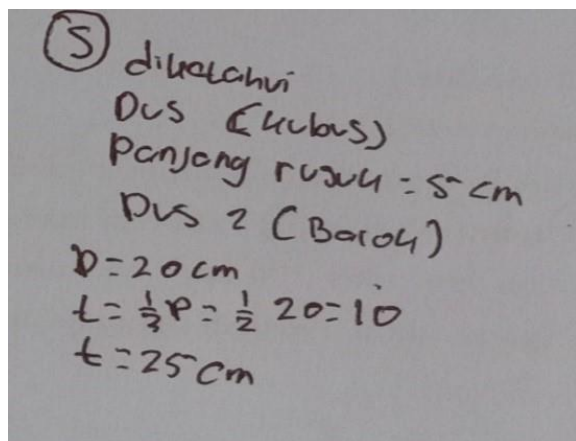 5
diketahui
Dus (kubus)
Panjang rusuk = 5 cm
Dus 2 (Balok)
P = 20 cm
l = 1/2 P = 1/2 20 = 10
t = 25 cm